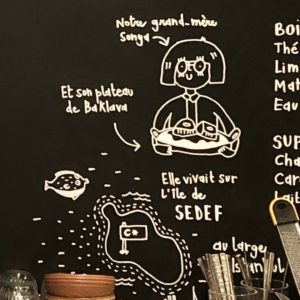 Notre grand-mère
Sonya
Et son plateau
de Baklava
Elle vivait sur
l'île de
SEDEF
C★
au large
BOI
Thé
Lim
Mat
Eau
SUP
Cha
Car
Lait